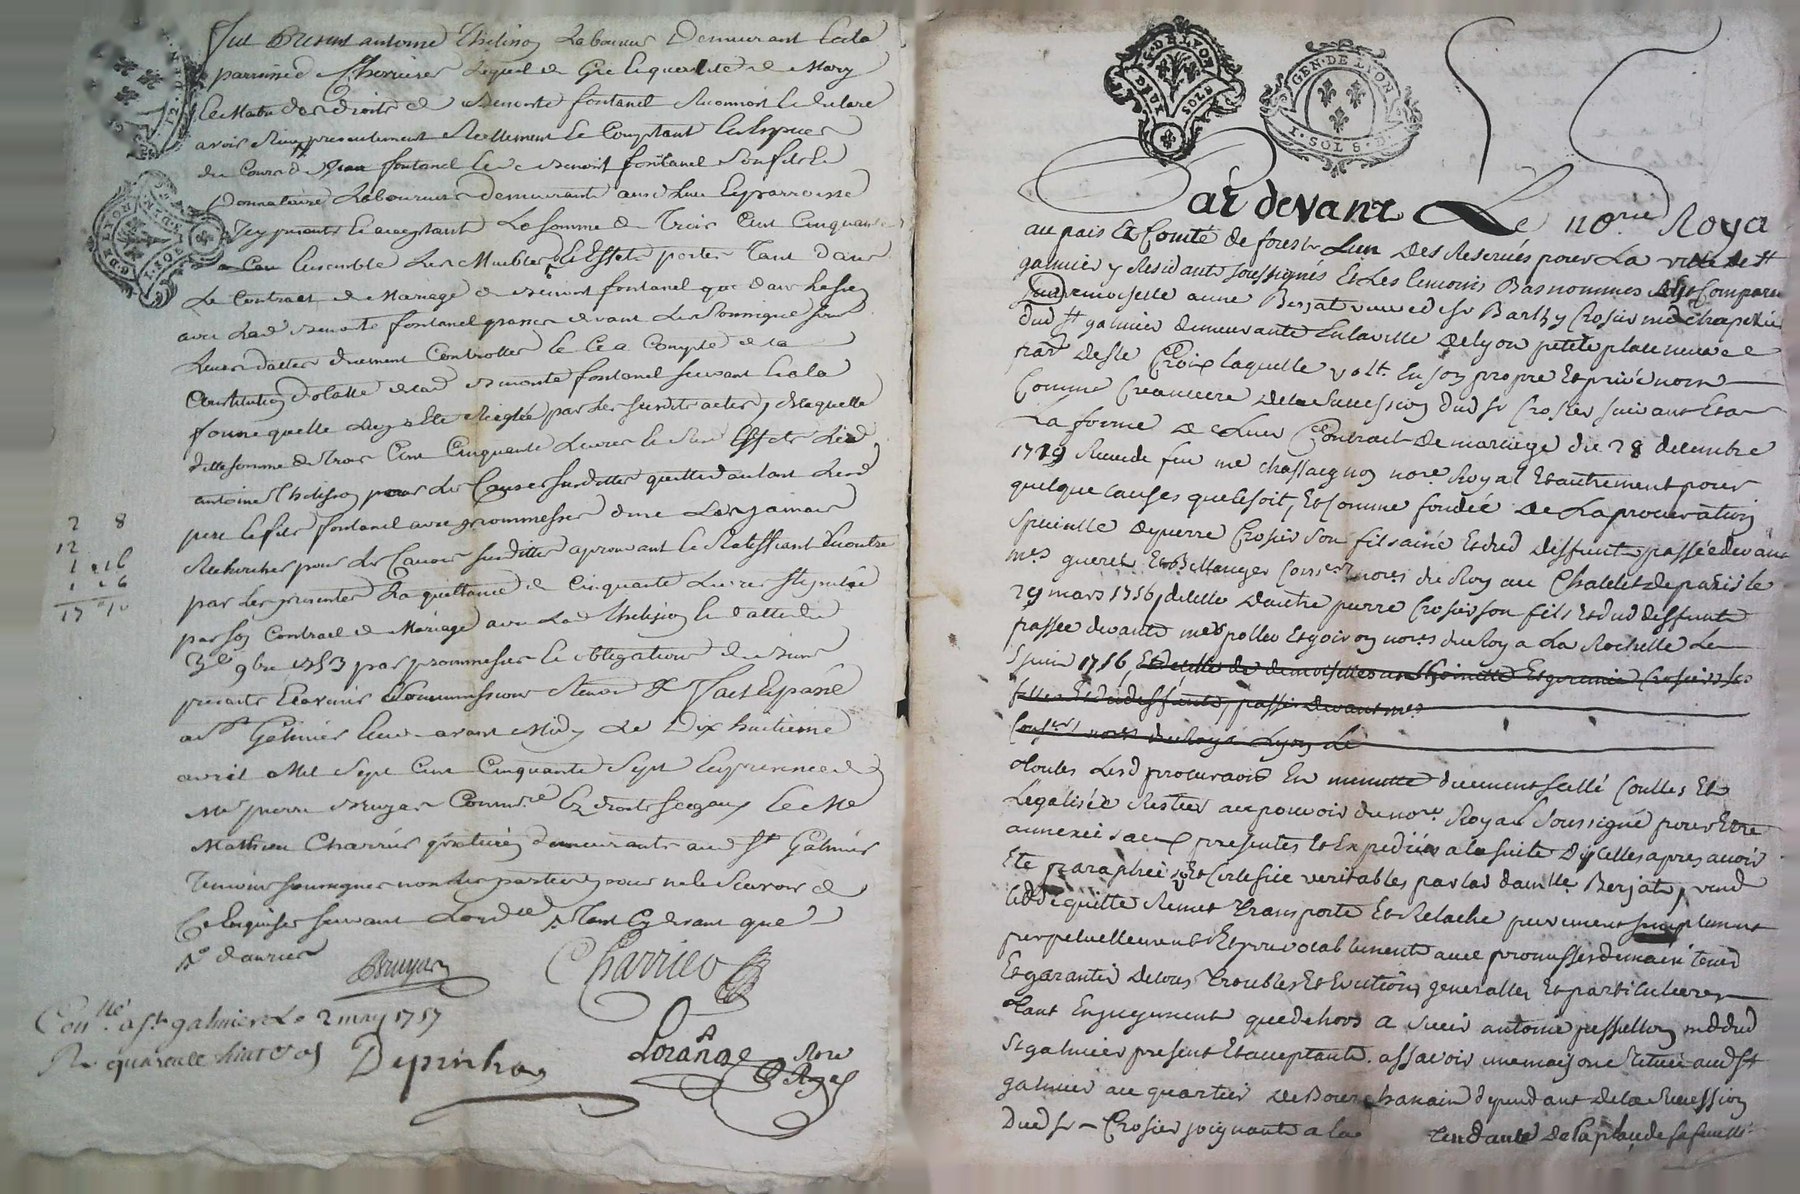 Fut Present antoine Thelisson Laboureur Demeurant
parroisse de lequel de Gré en qualité de Mary
Et Maitre des droits de Benoite fontanel Reconnoit Et declare
avoir Reçu presentement Reellement Et Comptant En Especes
du Cours de Jean fontanel Et de Benoit fontanel Son fils Et
Donnataire Laboureurs demeurants aud Lieu Et parroisse
Icy presents Et acceptants La somme de Trois Cent Cinquante
Ensemble Les Meubles Et Effets portes Tant dans
Le Contract de Mariage de Benoit fontanel que dans
avec Lad Benoite fontanel passes devant Le Nore Soussigné sous
Leurs dattes duement Controllés Et Ce a Compte de la
Constitution dotalle de lad Benoite fontanel suivant Et a la
forme quelle Luy a Eté Reglée par les susdits actes, de laquelle
ditte somme de Trois Cent Cinquante Livres Et Sus Effets Led
antoine Thelisson pour les Causes susdittes quitte d'autant Lesd
pere Et fils fontanel avec promesses de ne Les jamais
Rechercher pour les Causes susdittes aprouvant Et Ratiffiant En outre
par Les presentes La quittance de Cinquante Livres Stipulée
par son Contract de Mariage avec Lad Thelisson En datte du
9bre 1753 par promesses Et obligations de Biens
presents Et avenir Soummissions Renon &c fait Et passé
a St Galmier Etude avant Midy Le Dix huitieme
avril Mil Sept Cent Cinquante Sept En presence de
Me pierre Bruyas Commre Ez droits seigaux Et de Me
Mathieu Charrier praticien demeurants aud St Galmier
Temoins Soussignés non les parties pour ne le Scavoir de
Ce Enquises suivant Lordce
Bruyas Charrier
2 8
12
1 16
1 6
17 10
Conllé a St galmier Le 2 may 1757
R quarente huit sols Depinhas
Lorange Nore
Royal
G. DE LYON
SOLS
GEN. DE LYON
I. SOL 8. D.
Par devant Le nore Roya
au pais Et Comté de forest Lun Des Reservés pour La ville de St
galmier y Residant soussigné Et Les temoins Bas nommes Fut Comparu
Demoiselle anne Berjat veuve de sr Barthy Crosier md chapelier
dud St galmier demeurante En la ville De lyon petite place
par Desse Croix laquelle volt. En son propre Et privé nom
Comme Creanciere De la Succession dud Sr Crosier suivant Et a
La forme De Leur Contrait de mariage du 28 decembre
1719 Recu de feu me chassaignon nore Royal Et autrement pour
quelque causes que ce soit, Et Comme fondée De La procuration
speciale De pierre Crosier Son fils ainé Et dud deffunt passée devant
mes gueret Et Bellanger Conser nores du Roy au Chatelet de paris le
29 mars 1756, de celle Dautre pierre Crosier son fils Et dud deffunt
passée devant mes pollee Et goivon nores du Roy a La Rochelle Le
5 juin 1756, Et de celle de demoiselles Crosier ses
filles Et dud deffunt, passée devant mes
Conser nores du Roy a Lyon le
toutes Lesd procurations En minutte duement scellé Conllés Et
Legalisée Restées au pouvoir du nore Royal Soussigné pour Etre
annexées aux presentes Et Expediées a la suite Dycelles apres avoir
Eté paraphées Et Certefiée veritables par lad damlle Berjat, vend
cedde quitte Remet Transporte Et Relache purement simplement
perpetuellement Et irrevocablement avec promesses de maintenir
Et garantir De tous troubles Et Evictions generalles Et particulieres
tant En jugement que dehors a Sieur antoine pesselhon md dud
St galmier present Et acceptant. assavoir une maison située aud St
galmier au quartier De Bourchanain dependant De la Succession
Dud sr Crosier joignante a la tendante De la place de